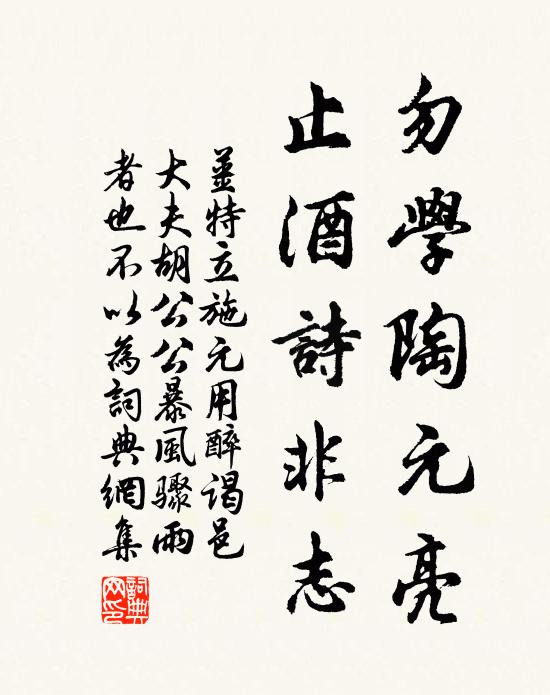 勿學陶元亮
止酒詩非志
薑特立施元用醉謁邑
大夫胡公公暴風驟雨
者也不以為詞典網集
詞典網印